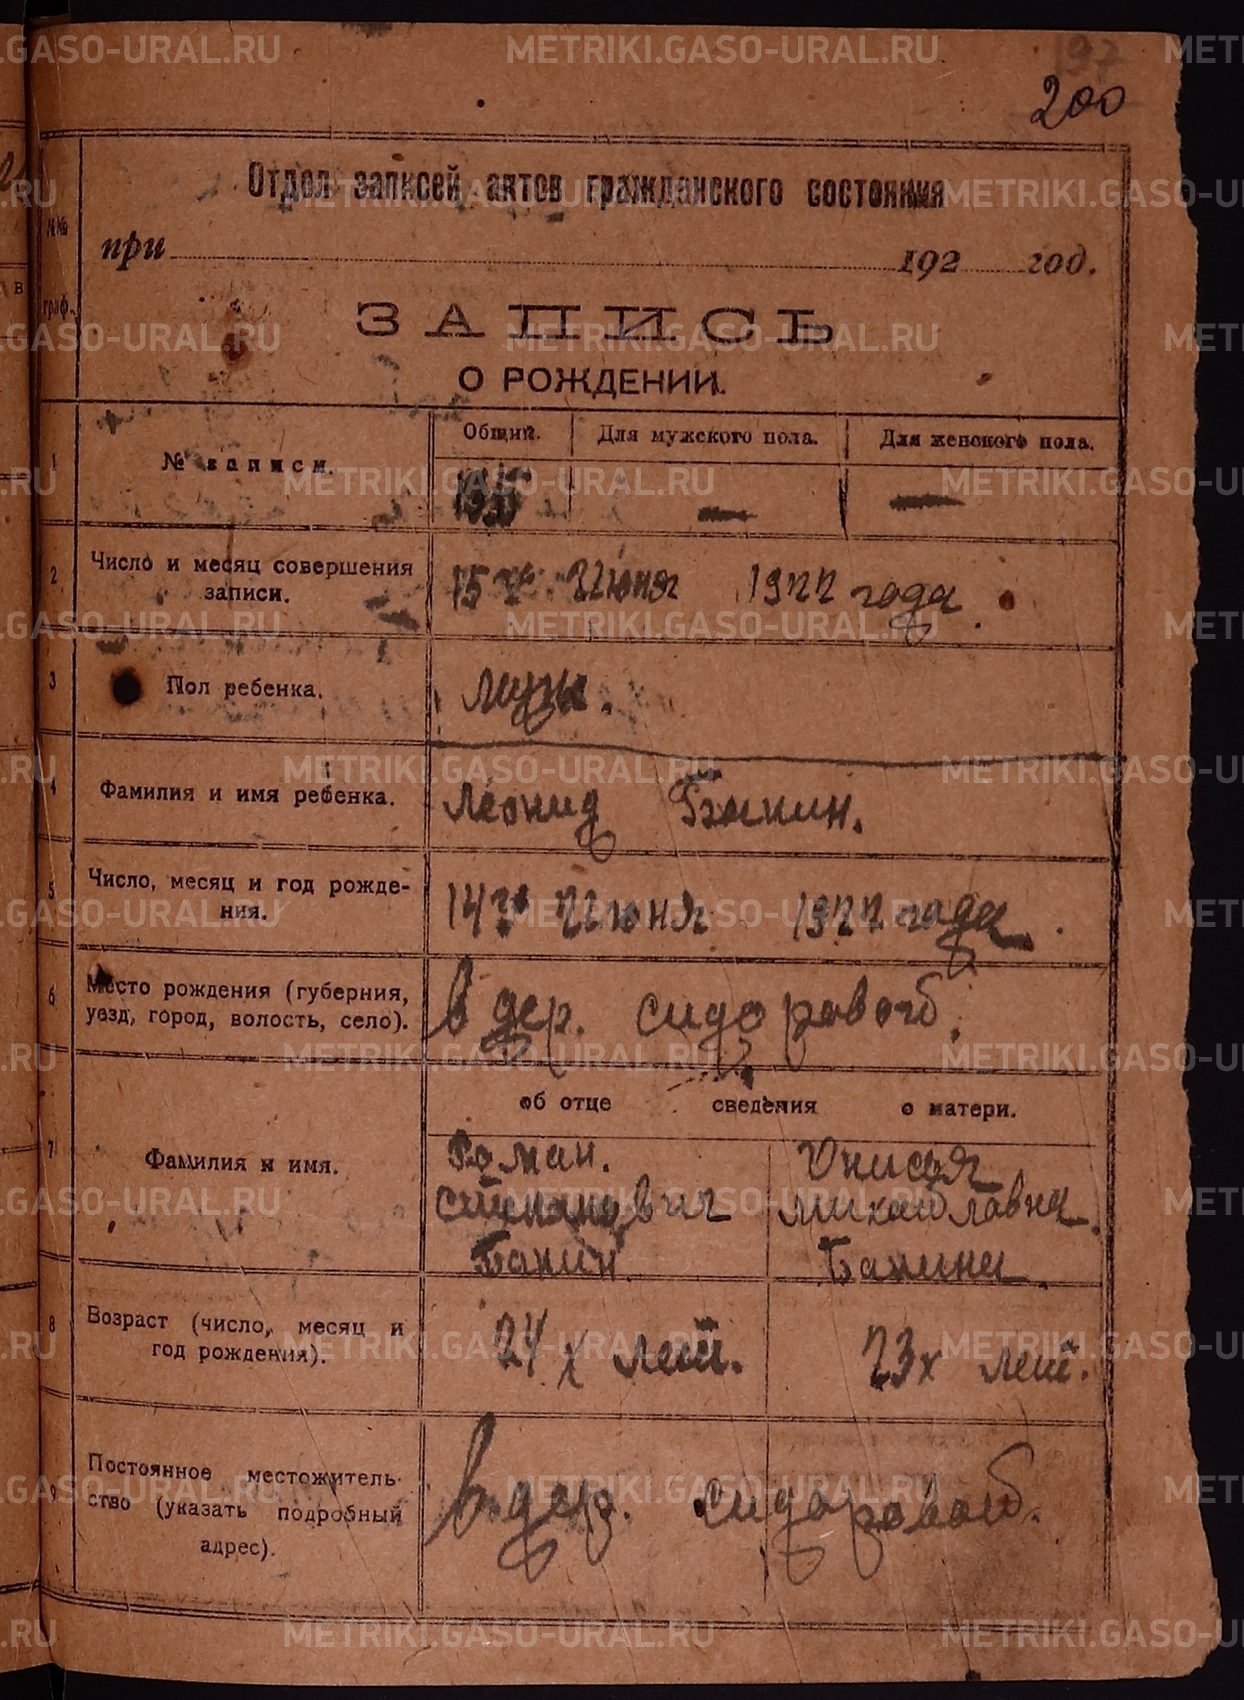 METRIKI.GASO-URAL.RU
197
200
Отдел записей актов гражданского состояния
№№
граф.
при 192 год.
ЗАПИСЬ
О РОЖДЕНИИ.
Общий. Для мужского пола. Для женского пола.
1 № записи. — —
2 Число и месяц совершения
записи.
15го Июня 1922 года.
3 Пол ребенка. Муж.
4 Фамилия и имя ребенка. Леонид
5 Число, месяц и год рожде-
ния.
14го Июня 1922 года.
6 Место рождения (губерния,
уезд, город, волость, село).
в дер. сидоровой.
об отце сведения о матери.
7 Фамилия и имя.
Роман. Михайловна
Степанович
8 Возраст (число, месяц и
год рождения).
24х лет. 23х лет.
9 Постоянное местожитель-
ство (указать подробный
адрес).
в дер. сидоровой.